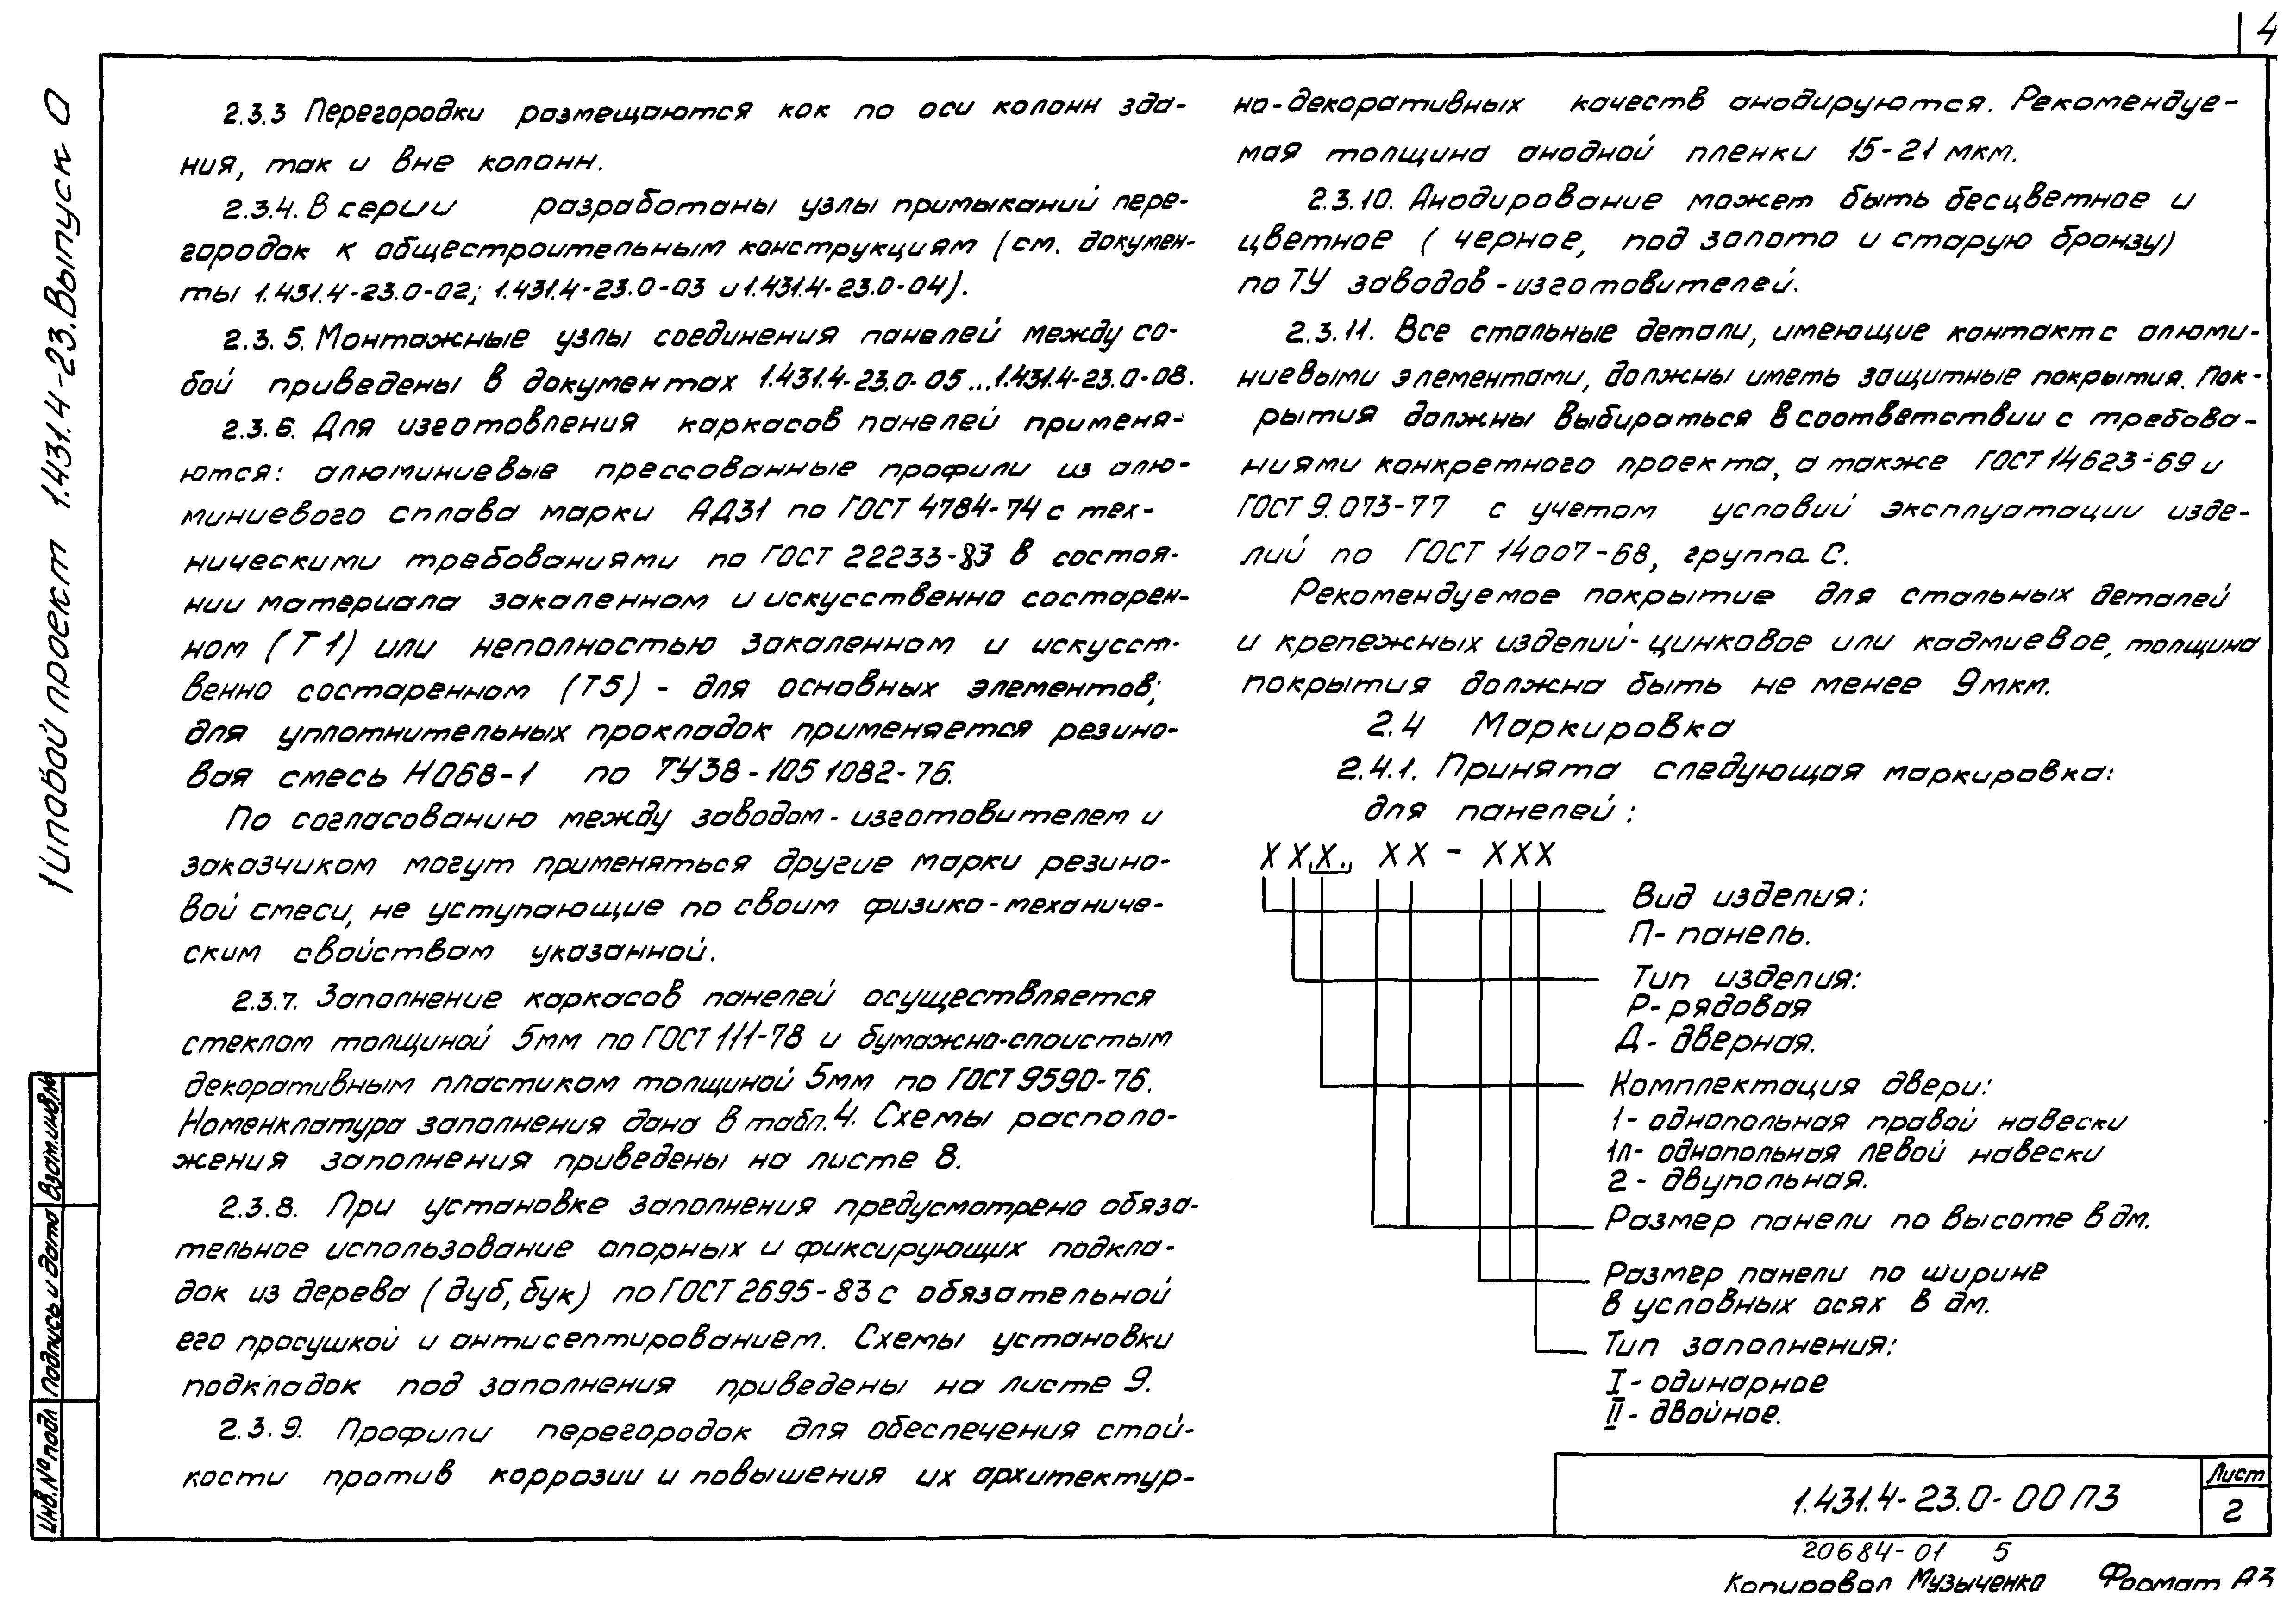 4
Типовой проект 1.431.4-23. Выпуск 0
2.3.3 Перегородки размещаются как по оси колонн зда-
ния, так и вне колонн.
2.3.4. В серии разработаны узлы примыканий пере-
городок к общестроительным конструкциям (см. докумен-
ты 1.431.4-23.0-02; 1.431.4-23.0-03 и 1.431.4-23.0-04).
2.3.5. Монтажные узлы соединения панелей между со-
бой приведены в документах 1.431.4-23.0-05...1.431.4-23.0-08.
2.3.6. Для изготовления каркасов панелей применя-
ются: алюминиевые прессованные профили из алю-
миниевого сплава марки АД31 по ГОСТ 4784-74 с тех-
ническими требованиями по ГОСТ 22233-83 в состоя-
нии материала закаленном и искусственно состарен-
ном (Т1) или неполностью закаленном и искусст-
венно состаренном (Т5) - для основных элементов;
для уплотнительных прокладок применяется резино-
вая смесь НО68-1 по ТУ38-1051082-76.
По согласованию между заводом-изготовителем и
заказчиком могут применяться другие марки резино-
вой смеси, не уступающие по своим физико-механиче-
ским свойствам указанной.
2.3.7. Заполнение каркасов панелей осуществляется
стеклом толщиной 5мм по ГОСТ 111-78 и бумажно-слоистым
декоративным пластиком толщиной 5мм по ГОСТ 9590-76.
Номенклатура заполнения дана в табл. 4. Схемы располо-
жения заполнения приведены на листе 8.
2.3.8. При установке заполнения предусмотрено обяза-
тельное использование опорных и фиксирующих подкла-
док из дерева (дуб, бук) по ГОСТ 2695-83 с обязательной
его просушкой и антисептированием. Схемы установки
подкладок под заполнения приведены на листе 9.
2.3.9. Профили перегородок для обеспечения стой-
кости против коррозии и повышения их архитектур-
но-декоративных качеств анодируются. Рекомендуе-
мая толщина анодной пленки 15-21 мкм.
2.3.10. Анодирование может быть бесцветное и
цветное (черное, под золото и старую бронзу)
по ТУ заводов-изготовителей.
2.3.11. Все стальные детали, имеющие контакт с алюми-
ниевыми элементами, должны иметь защитные покрытия. Пок-
рытия должны выбираться в соответствии с требова-
ниями конкретного проекта, а также ГОСТ 14623-69 и
ГОСТ 9.073-77 с учетом условий эксплуатации изде-
лий по ГОСТ 14007-68, группа С.
Рекомендуемое покрытие для стальных деталей
и крепежных изделий-цинковое или кадмиевое, толщина
покрытия должна быть не менее 9мкм.
2.4 Маркировка
2.4.1. Принята следующая маркировка:
для панелей:
ХХХ. ХХ - ХХХ
Вид изделия:
П- панель.
Тип изделия:
Р- рядовая
Д- дверная.
Комплектация двери:
1- однопольная правой навески
1л- однопольная левой навески
2- двупольная.
Размер панели по высоте в дм.
Размер панели по ширине
в условных осях в дм.
Тип заполнения:
I- одинарное
II- двойное.
Инв.№подл
Подпись и дата
Взам.инв.№
1.431.4-23.0-00 ПЗ
Лист
2
20684-01 5
Копировал Музыченко Формат А3